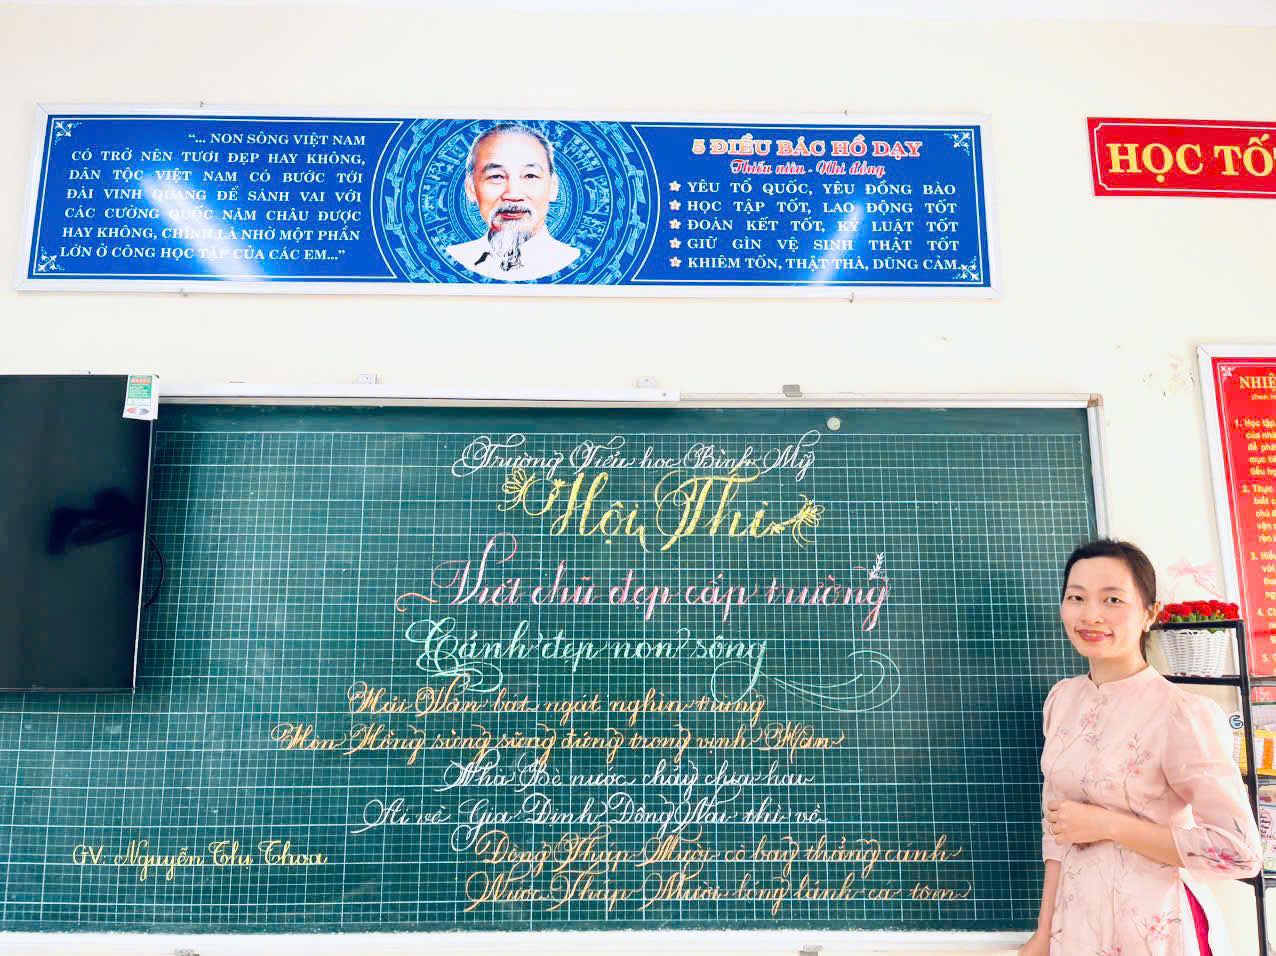 “... NON SÔNG VIỆT NAM
CÓ TRỞ NÊN TƯƠI ĐẸP HAY KHÔNG,
DÂN TỘC VIỆT NAM CÓ BƯỚC TỚI
ĐÀI VINH QUANG ĐỂ SÁNH VAI VỚI
CÁC CƯỜNG QUỐC NĂM CHÂU ĐƯỢC
HAY KHÔNG, CHÍNH LÀ NHỜ MỘT PHẦN
LỚN Ở CÔNG HỌC TẬP CỦA CÁC EM...”
5 ĐIỀU BÁC HỒ DẠY
Thiếu niên - Nhi đồng
YÊU TỔ QUỐC, YÊU ĐỒNG BÀO
HỌC TẬP TỐT, LAO ĐỘNG TỐT
ĐOÀN KẾT TỐT, KỶ LUẬT TỐT
GIỮ GÌN VỆ SINH THẬT TỐT
KHIÊM TỐN, THẬT THÀ, DŨNG CẢM.
HỌC TỐ
Trường Tiểu học Bình Mỹ
Hội Thi
Viết chữ đẹp cấp trường
Cảnh đẹp non sông
Hải Vân bát ngát nghìn trùng
Hòn Hồng sừng sững đứng trong vịnh Hàn
Nhà Bè nước chảy chia hai
Ai về Gia Định Đồng Nai thì về.
Đồng Tháp Mười cò bay thẳng cánh
Nước Tháp Mười lóng lánh cá tôm
GV: Nguyễn Thị Thoa
NHIỆ
1. Học tập
của nhà
2. Thực